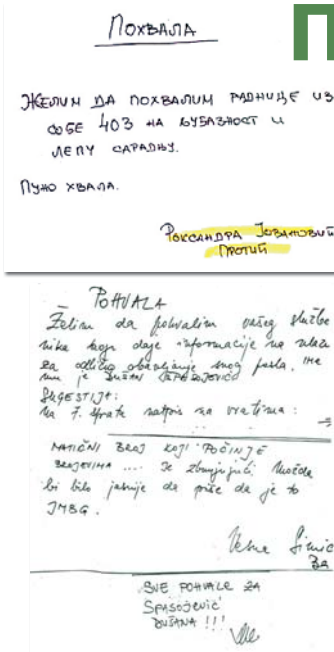 П
ПОХВАЛА
ЖЕЛИМ ДА ПОХВАЛИМ РАДНИЦЕ ИЗ
СОБЕ 403 НА ЉУБАЗНОСТ И
ЛЕПУ САРАДЊУ.
ПУНО ХВАЛА.
РОКСАНДРА ЈОВАНОВИЋ
ПРОТИЋ
POHVALA
Želim da pohvalim vašeg službe
nika koji daje informacije na ulazu
za odlično obavljanje svog posla. Ime
mu je DUŠAN SPASOJEVIĆ
SUGESTIJA:
Na 7. spratu natpis na vratima:
MATIČNI BROJ KOJI POČINJE
BROJEVIMA .... Je zbunjujući. Možda
bi bilo jasnije da piše da je to
JMBG.
Vesna Simić
SVE POHVALE ZA
SPASOJEVIĆ
DUŠANA !!!